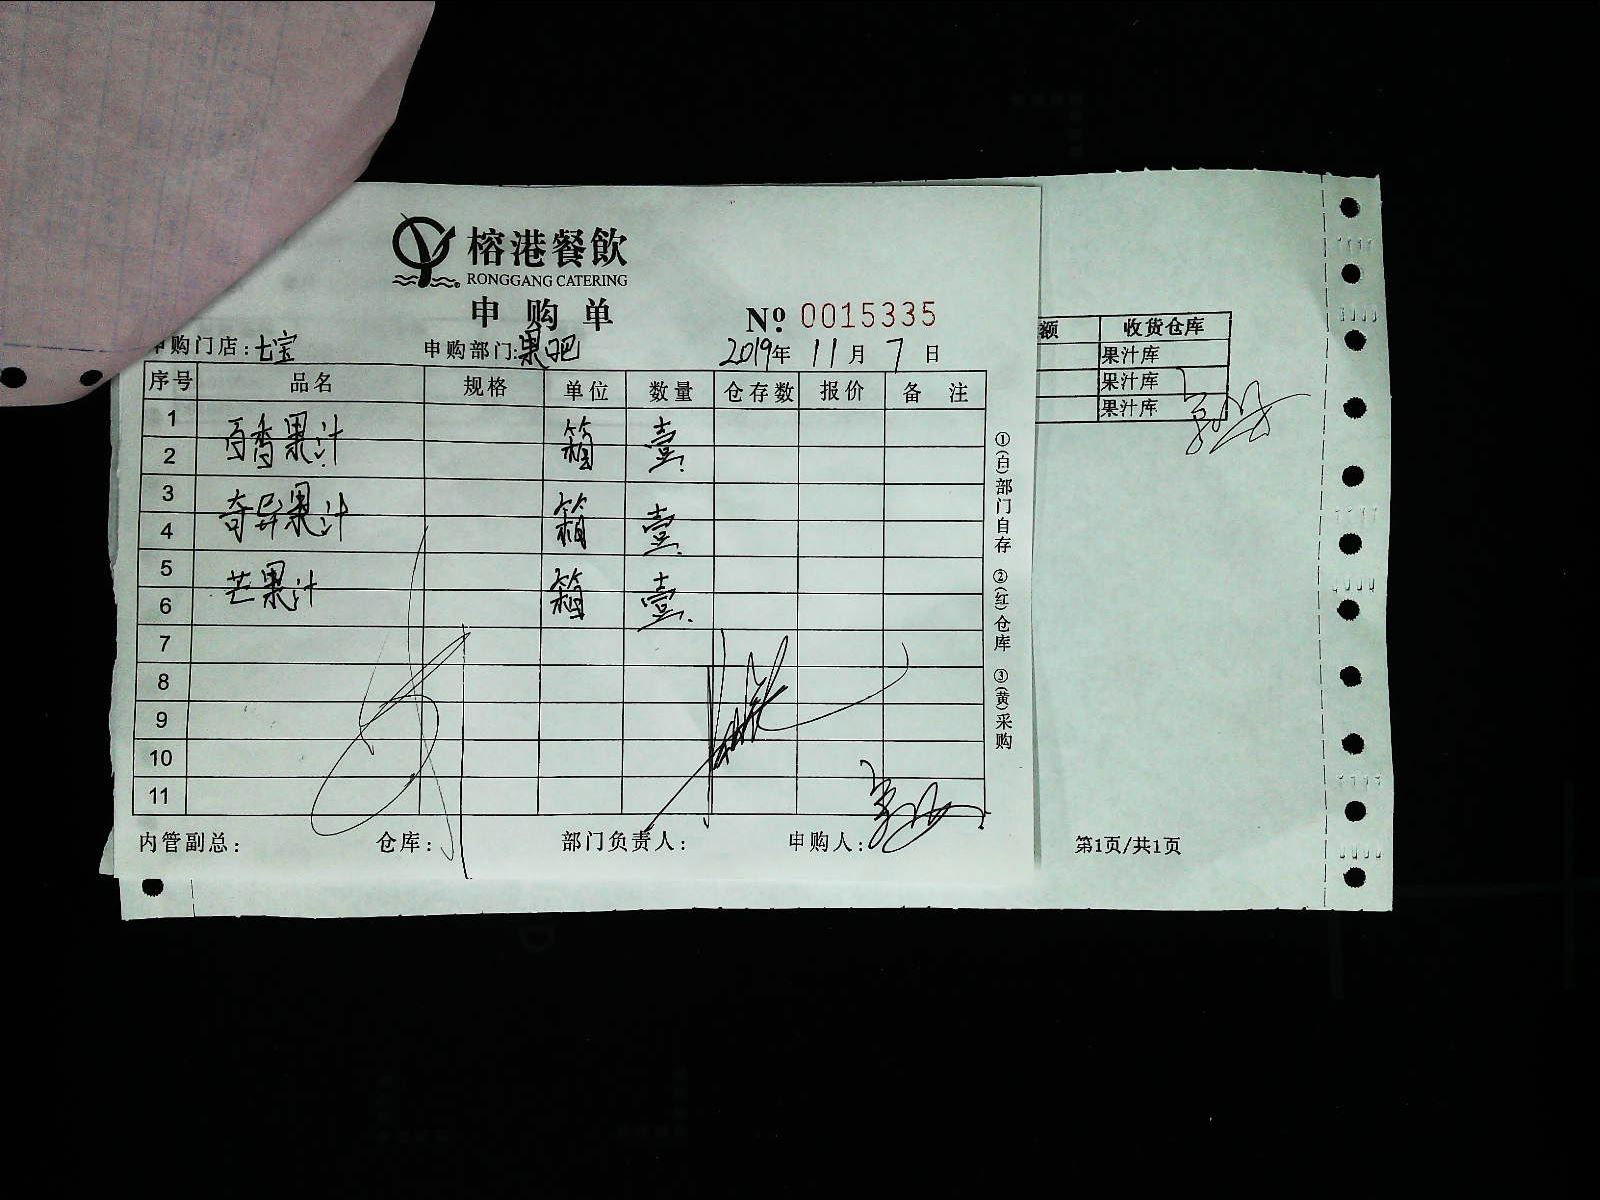 榕港餐飲
RONGGANG CATERING
申购单
№ 0015335
申购门店:七宝 申购部门:果吧 2019年 11月 7日
序号 品名 规格 单位 数量 仓存数 报价 备注
1 百香果汁 箱 壹
2
3 奇异果汁 箱 壹
4
5 芒果汁 箱 壹
6
7
8
9
10
11
内管副总: 仓库: 部门负责人: 申购人:
①(白)部门自存 ②(红)仓库 ③(黄)采购
额 收货仓库
果汁库
果汁库
果汁库
第1页/共1页